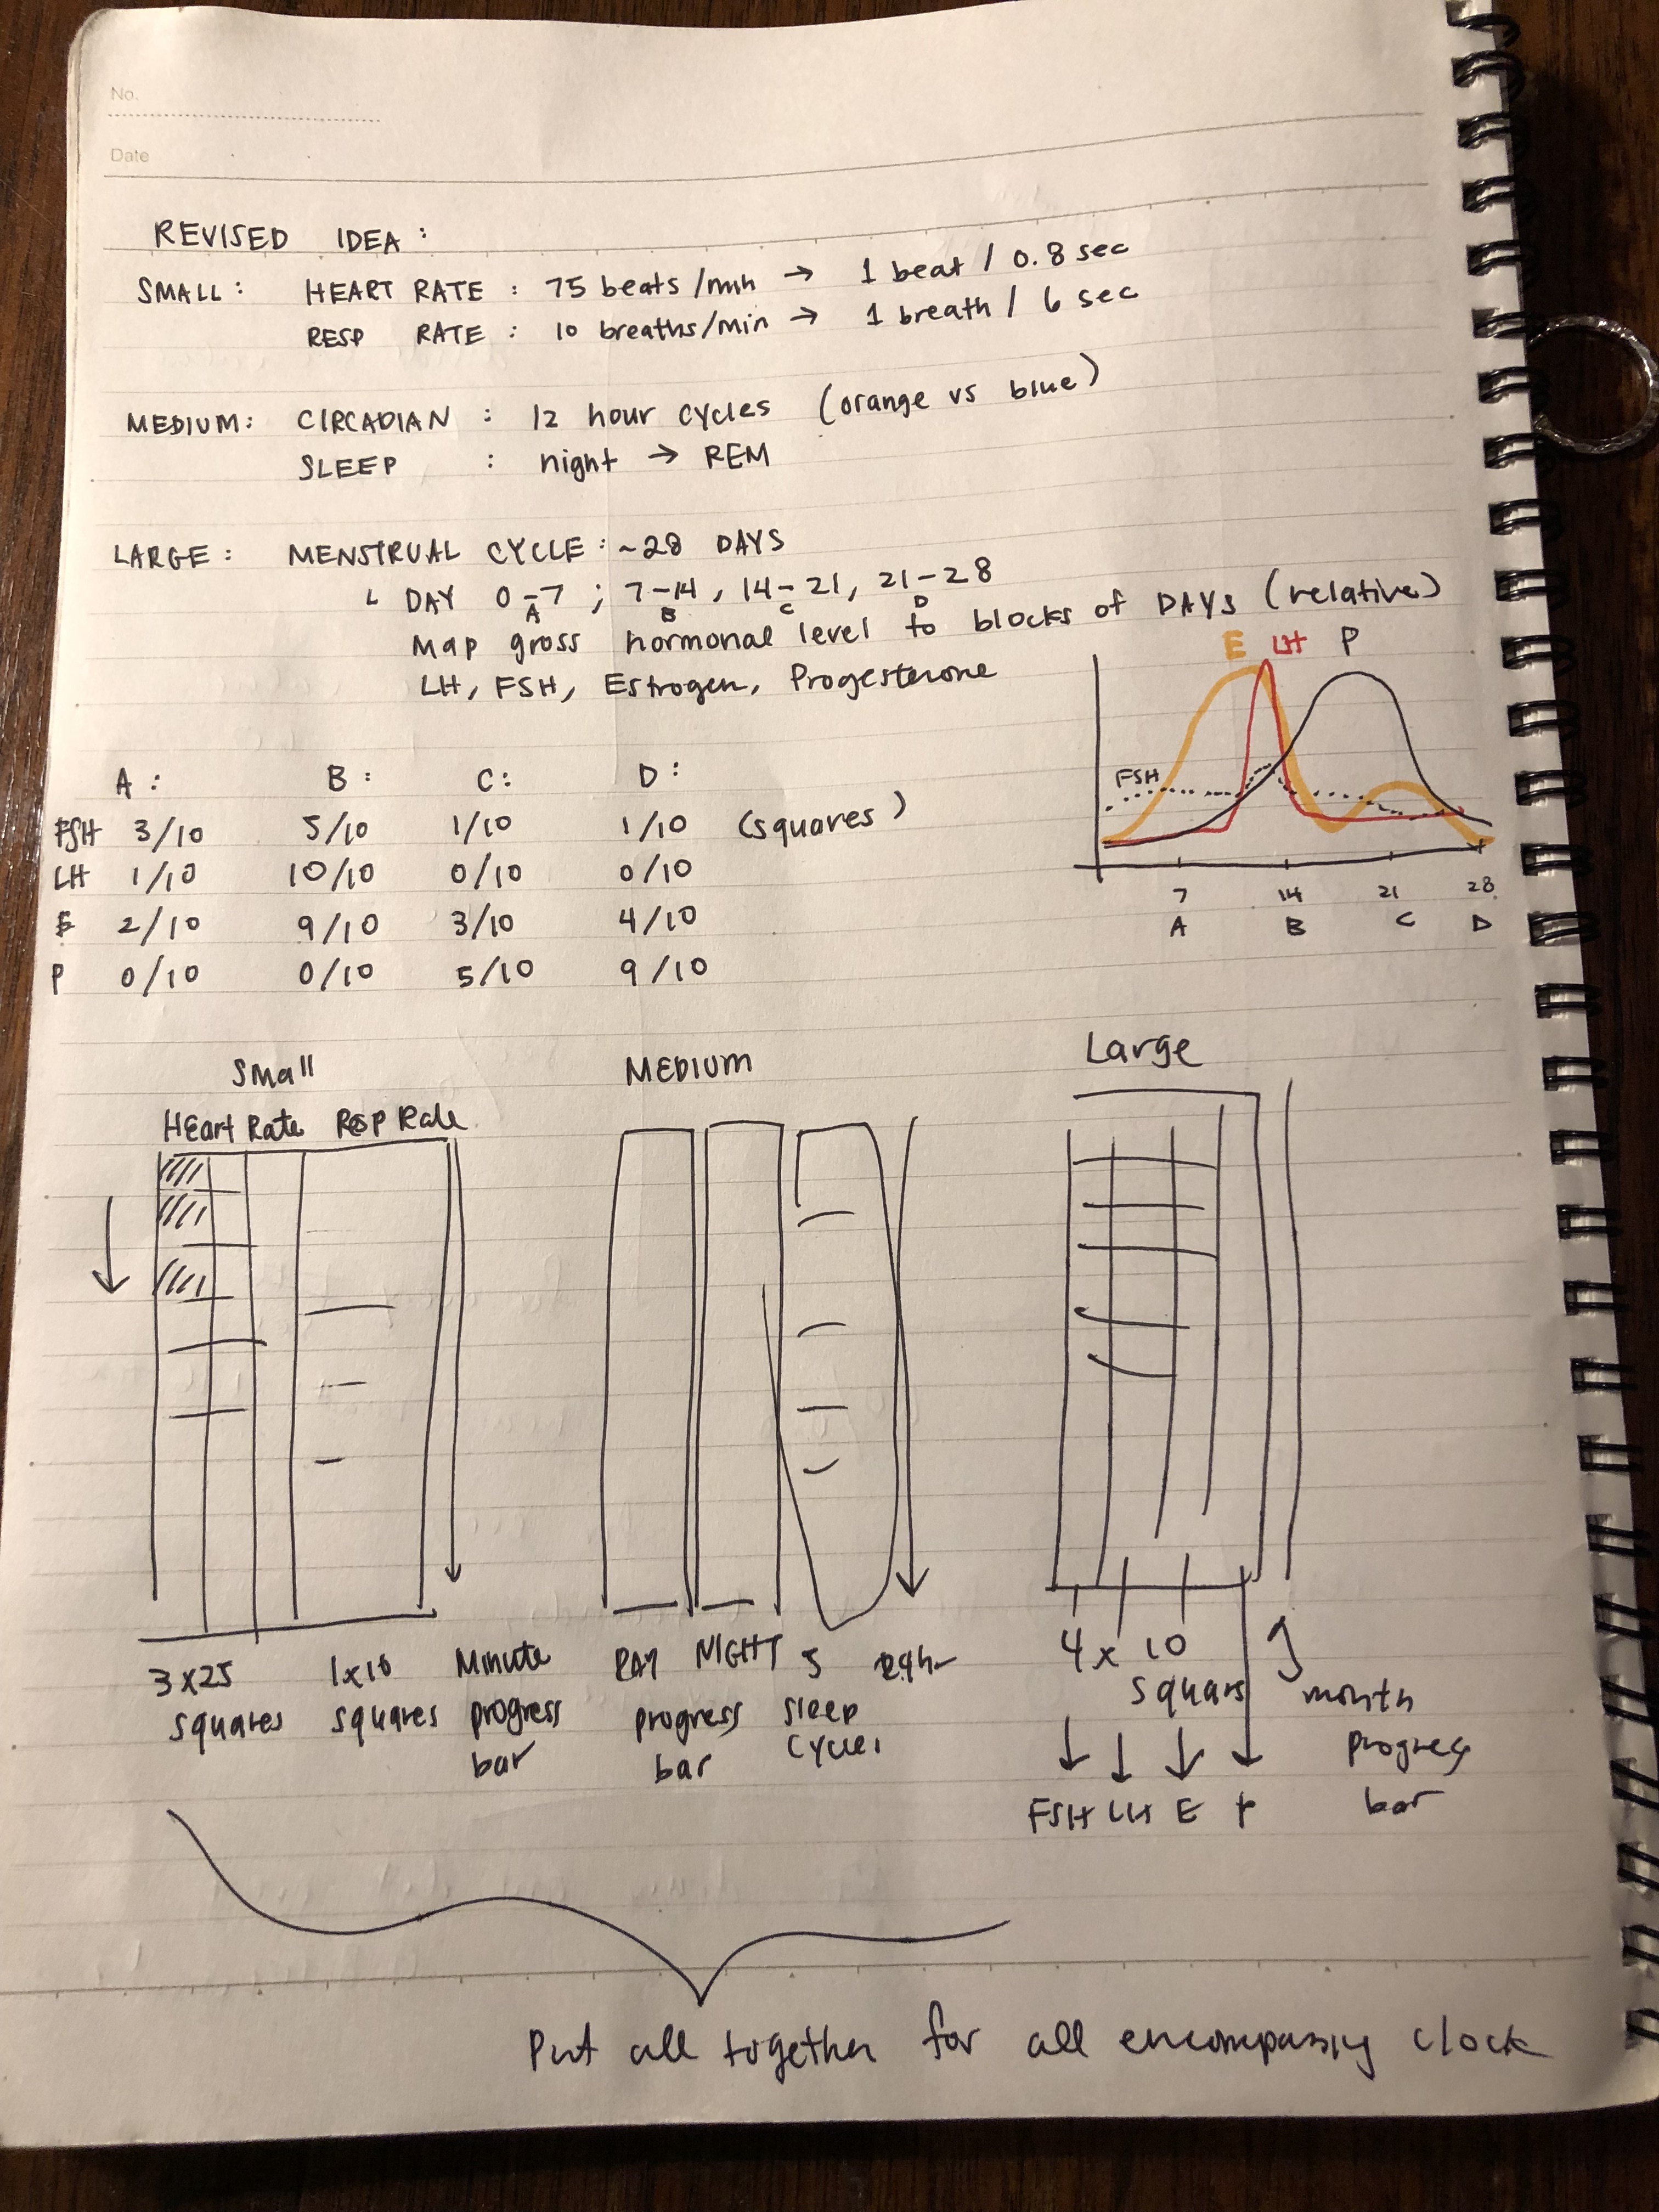 No.
Date
REVISED IDEA :
SMALL : HEART RATE : 75 beats/min → 1 beat / 0.8 sec
RESP RATE : 10 breaths/min → 1 breath / 6 sec
MEDIUM : CIRCADIAN : 12 hour cycles (orange vs blue)
SLEEP : night → REM
LARGE : MENSTRUAL CYCLE : ~28 DAYS
↳ DAY 0-7 ; 7-14, 14-21, 21-28
A B C D
Map gross hormonal level to blocks of DAYS (relative)
LH, FSH, Estrogen, Progesterone
E LH P
FSH
7 14 21 28
A B C D
A : B : C : D :
FSH 3/10 5/10 1/10 1/10 (squares)
LH 1/10 10/10 0/10 0/10
E 2/10 9/10 3/10 4/10
P 0/10 0/10 5/10 9/10
Small MEDIUM Large
Heart Rate Resp Rate
3x25 squares
1x10 squares
Minute progress bar
DAY NIGHT
progress bar
5 sleep cycles
24hr
4 x 10 squares
month progress bar
FSH LH E P
Put all together for all encompassing clock